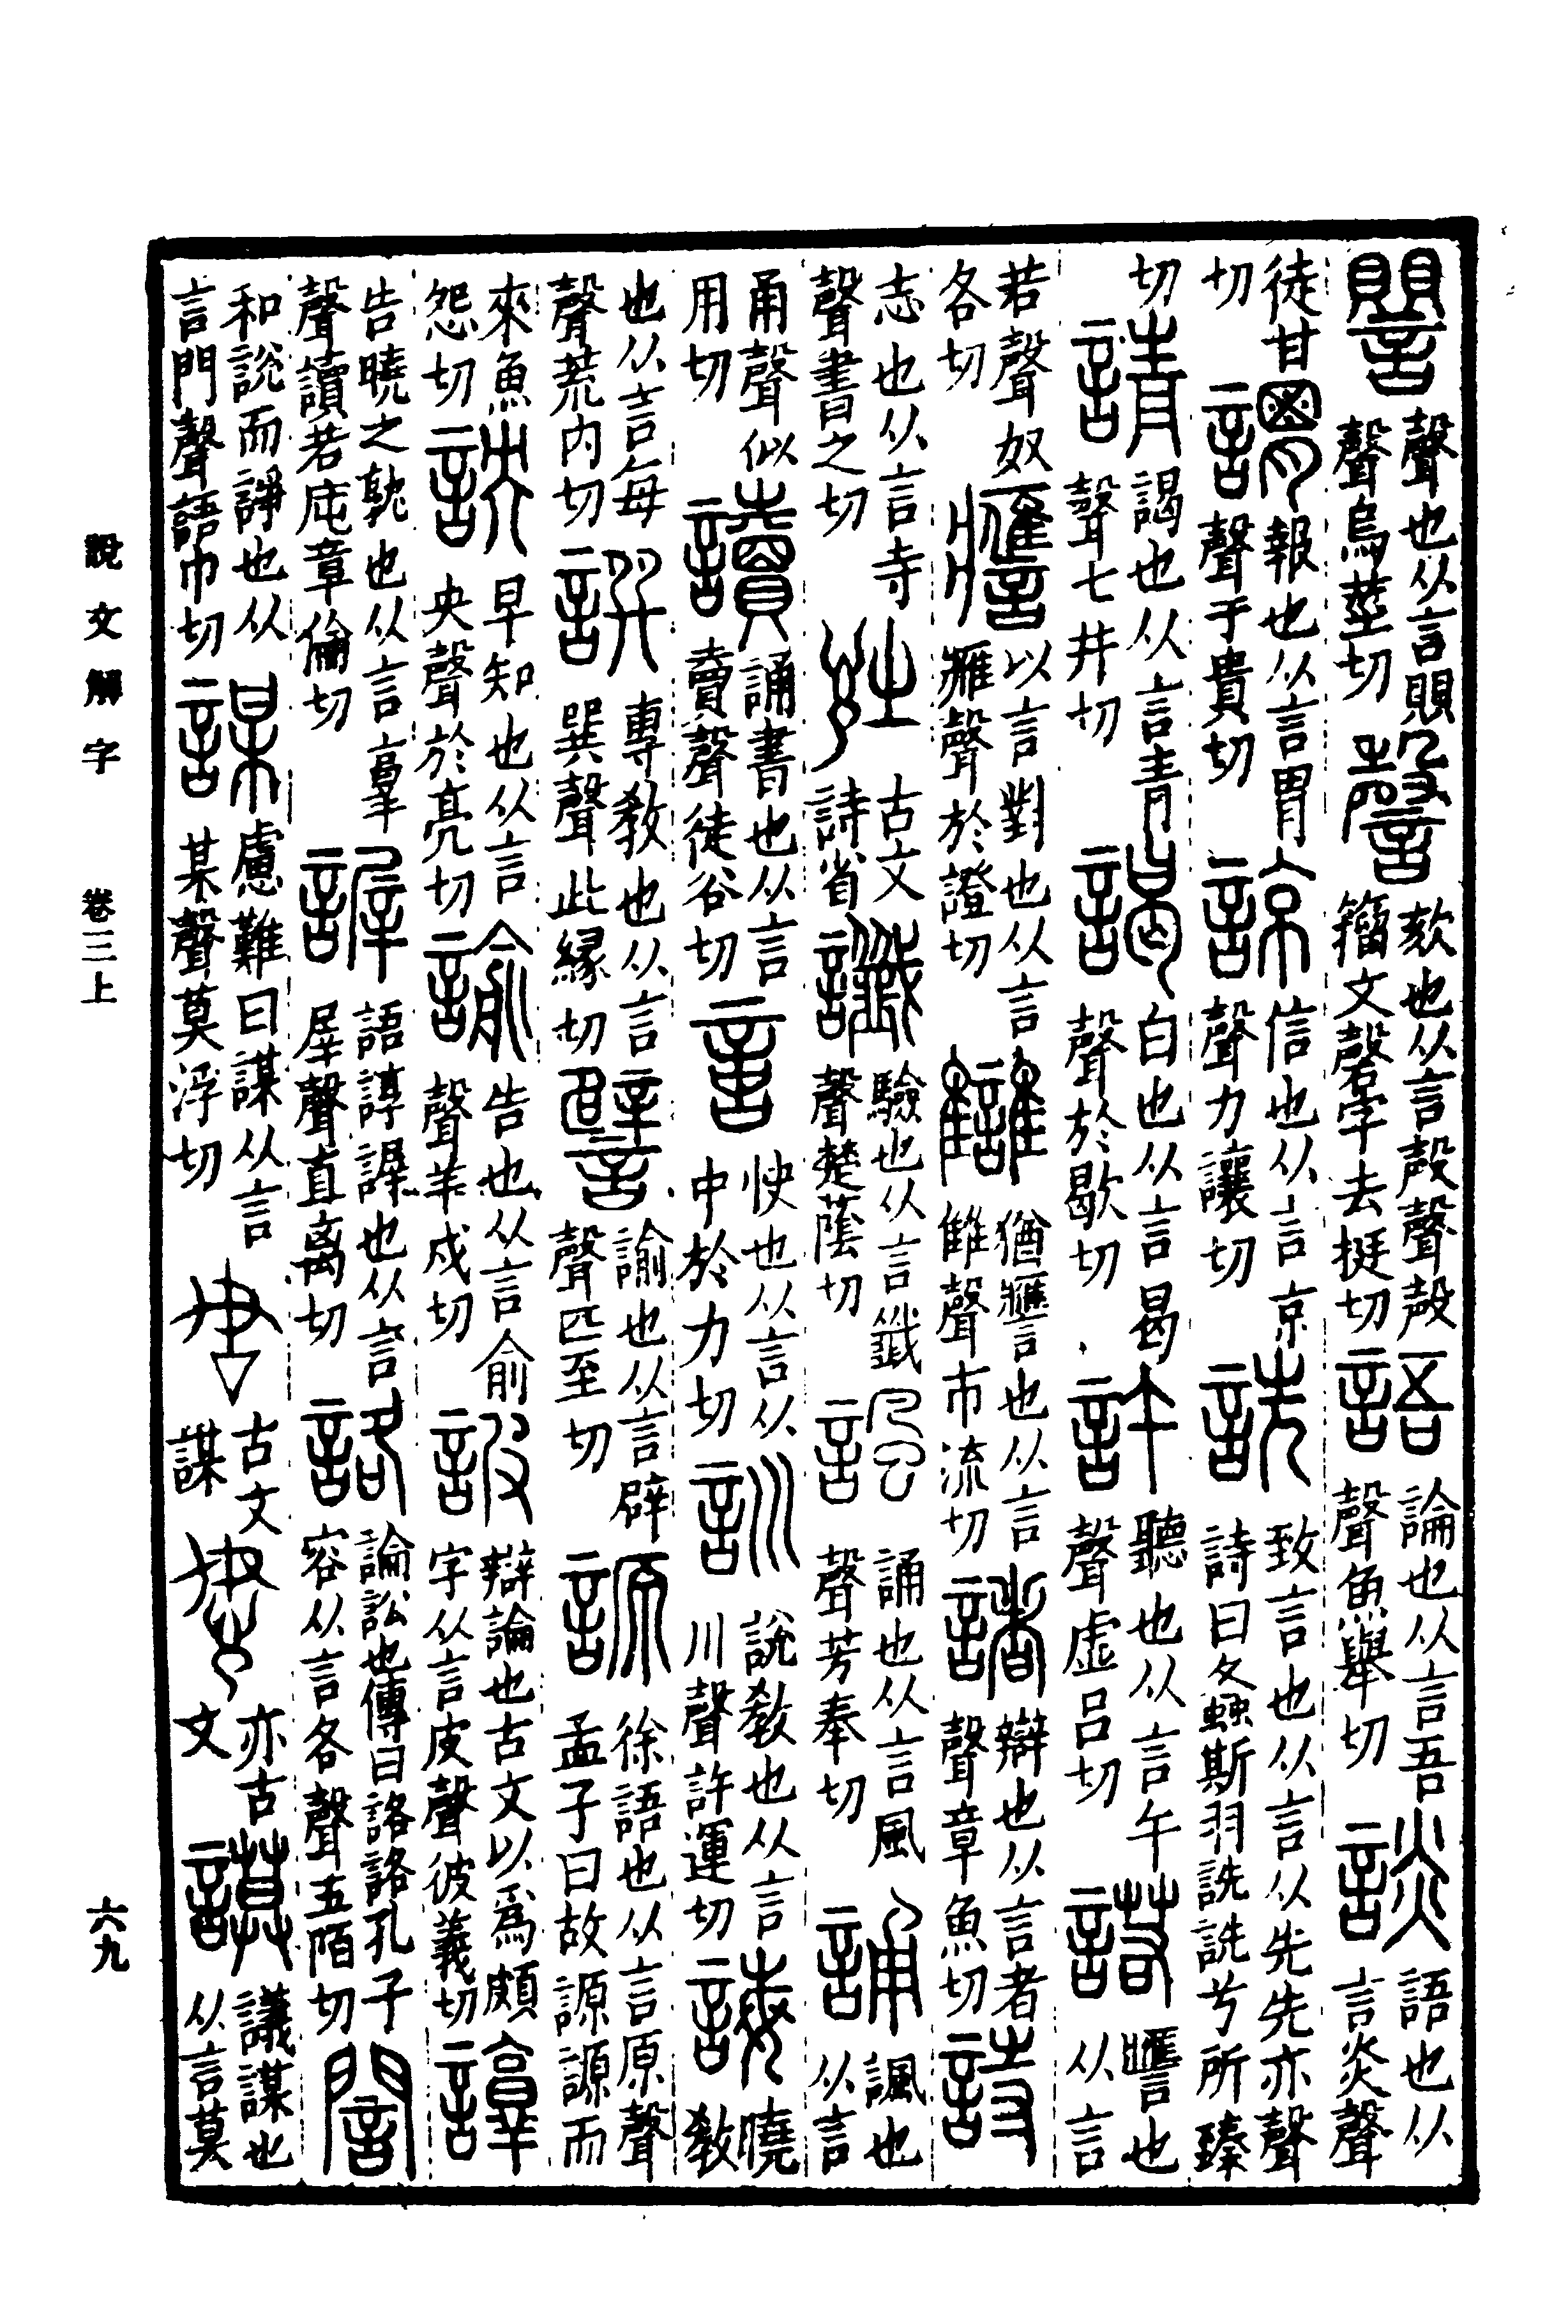 譻聲也从言賏聲烏莖切謦欬也从言殸聲殸籒文磬字去挺切語論也从言吾聲魚舉切談語也从言炎聲
徒甘切謂報也从言胃聲于貴切諒信也从言京聲力讓切詵致言也从言从先先亦聲詩曰螽斯羽詵詵兮所臻
切請謁也从言青聲七井切謁白也从言曷聲於歇切許聽也从言午聲虚呂切諾譍也从言
若聲奴各切譍以言對也从言䧹聲於證切讎猶譍也从言雔聲市流切諸辯也从言者聲章魚切詩
志也从言寺聲書之切𧥳古文詩省讖驗也从言韱聲楚蔭切諷誦也从言風聲芳奉切誦諷也从言
甬聲似用切讀誦書也从言賣聲徒谷切䇾快也从言从中於力切訓說教也从言川聲許運切誨曉教
也从言每聲荒内切譔專教也从言巽聲此緣切譬諭也从言辟聲匹至切謜徐語也从言原聲孟子曰故謜謜而
來魚怨切詇早知也从言央聲於亮切諭告也从言俞聲羊戍切詖辯論也古文以爲頗字从言皮聲彼義切諄
告曉之孰也从言𦎫聲讀若庉章倫切謘語諄謘也从言屖聲直离切詻論訟也傳曰詻詻孔子容从言各聲五陌切誾
和說而諍也从言門聲語巾切謀慮難曰謀从言某聲莫浮切古文謀亦古文謨議謀也从言莫
說文解字 卷三上
六九